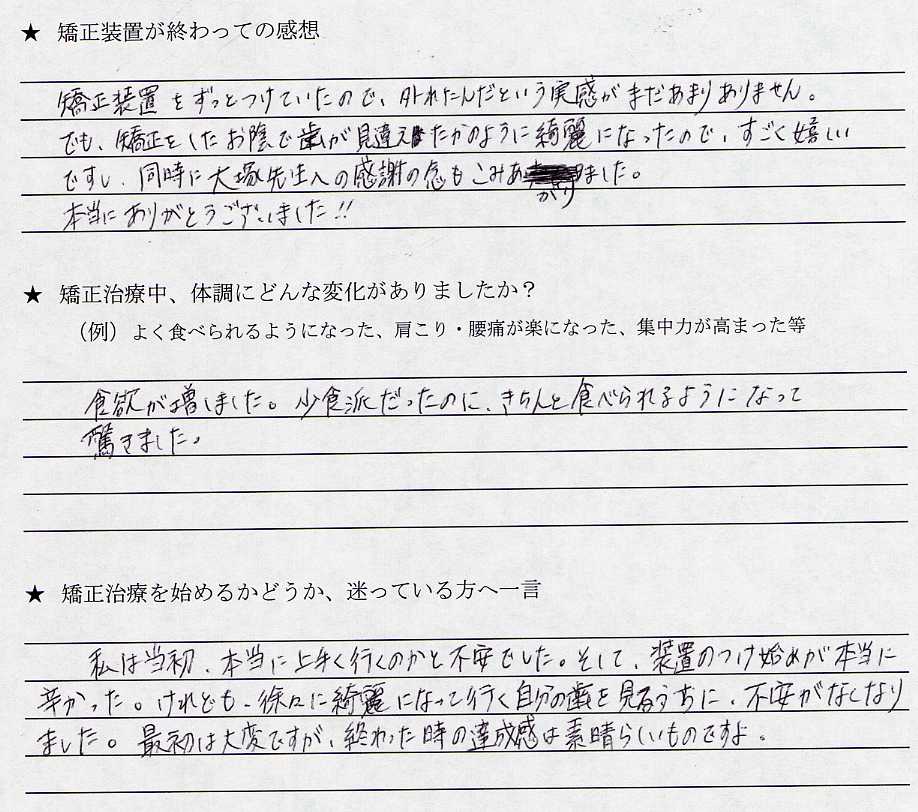 ★ 矯正装置が終わっての感想
矯正装置をずっとつけていたので、外れたんだという実感がまだあまりありません。
でも、矯正をしたお陰で歯が見違えたかのように綺麗になったので、すごく嬉しい
ですし、同時に大塚先生への感謝の念もこみあがりました。
本当にありがとうございました!!
★ 矯正治療中、体調にどんな変化がありましたか？
（例）よく食べられるようになった、肩こり・腰痛が楽になった、集中力が高まった等
食欲が増しました。少食派だったのに、きちんと食べられるようになって
驚きました。
★ 矯正治療を始めるかどうか、迷っている方へ一言
私は当初、本当に上手く行くのかと不安でした。そして、装置のつけ始めが本当に
辛かった。けれども、徐々に綺麗になって行く自分の歯を見るうちに、不安がなくなり
ました。最初は大変ですが、終わった時の達成感は素晴らしいものですよ。